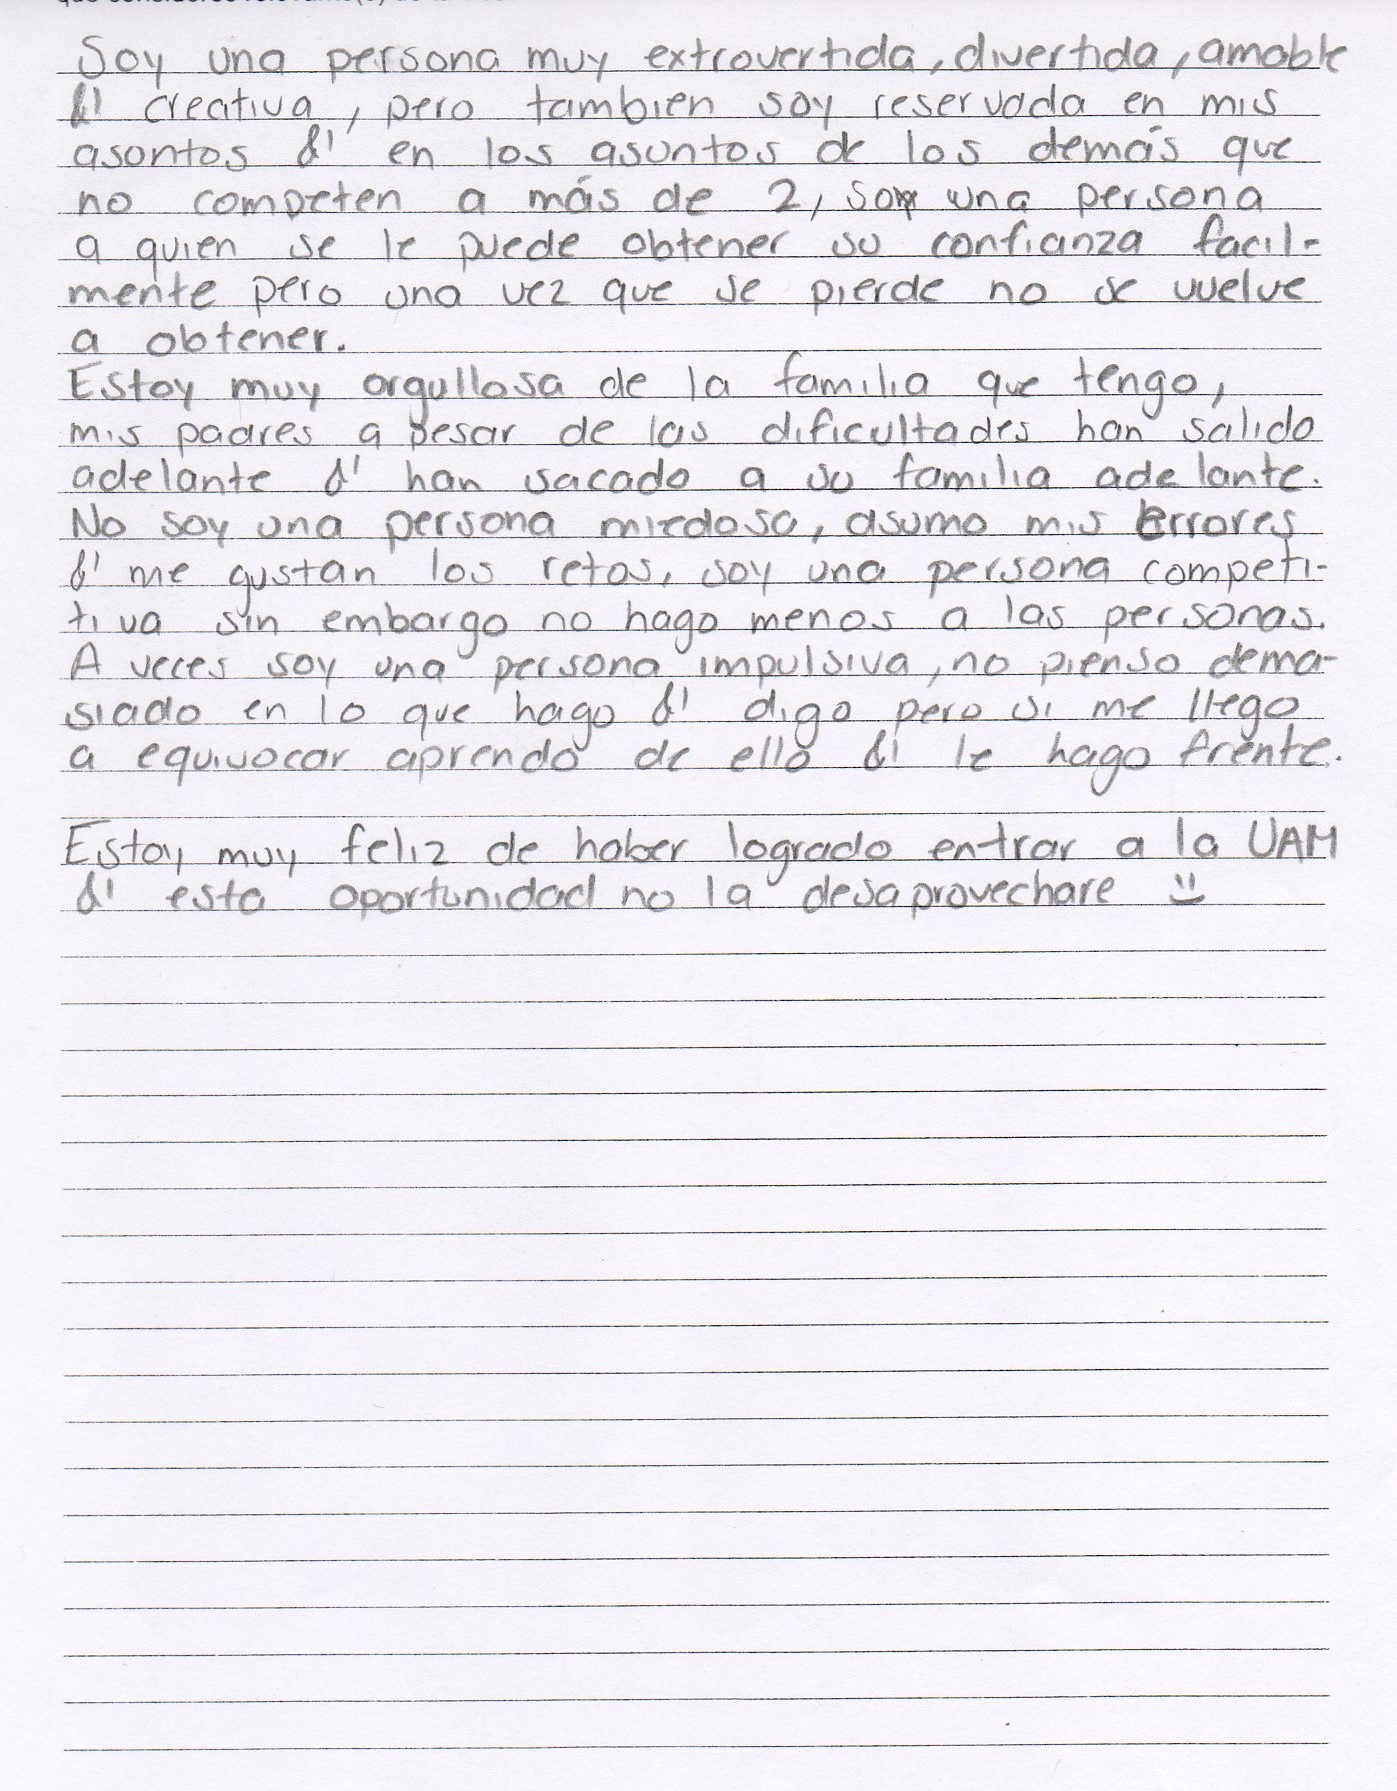 Soy una persona muy extrovertida, divertida, amable
&' creativa, pero tambien soy reservada en mis
asontos &' en los asuntos de los demás que
no competen a más de 2, soy una persona
a quien se le puede obtener su confianza facil-
mente pero una vez que se pierde no se vuelve
a obtener.
Estoy muy orgullosa de la familia que tengo,
mis padres a pesar de las dificultades han salido
adelante &' han sacado a su familia adelante.
No soy una persona miedosa, asumo mis errores
&' me gustan los retos, soy una persona competi-
tiva sin embargo no hago menos a las personas.
A veces soy una persona impulsiva, no pienso dema-
siado en lo que hago &' digo pero si me llego
a equivocar aprendo de ello &' le hago frente.
Estoy muy feliz de haber logrado entrar a la UAM
&' esta oportunidad no la desaprovechare